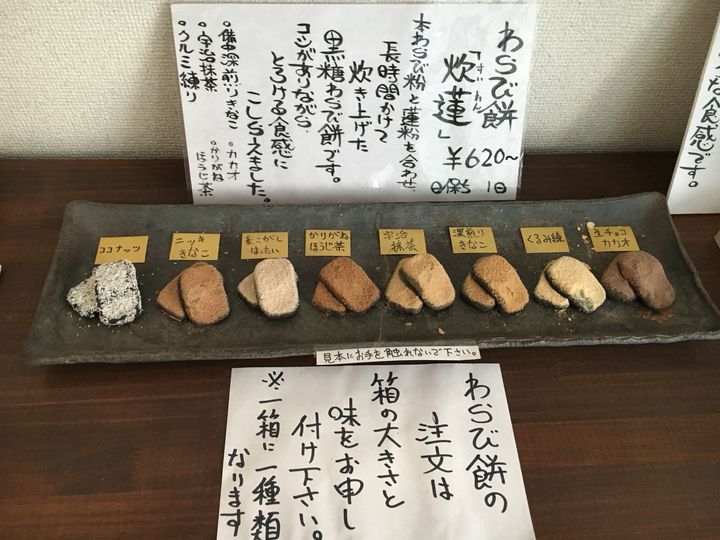 わらび餅
「炊蓮」
すいれん
¥620〜
日保ち 1日
本わらび粉と蓮粉を合わせ
長時間かけて
炊き上げた
黒糖わらび餅です。
コシがありながら
とろける食感に
こしらえました。
・深煎りきなこ
・宇治抹茶
・クルミ練り
・カカオ
・かりがね
ほうじ茶
な食感です。
ココナッツ
ニッキ
きなこ
麦こがし
はったい
かりがね
ほうじ茶
宇治
抹茶
深煎り
きなこ
くるみ練
生チョコ
カカオ
見本にお手を触れないで下さい。
わらび餅の
注文は
箱の大きさと
味をお申し
付け下さい。
※一箱に一種類
なります